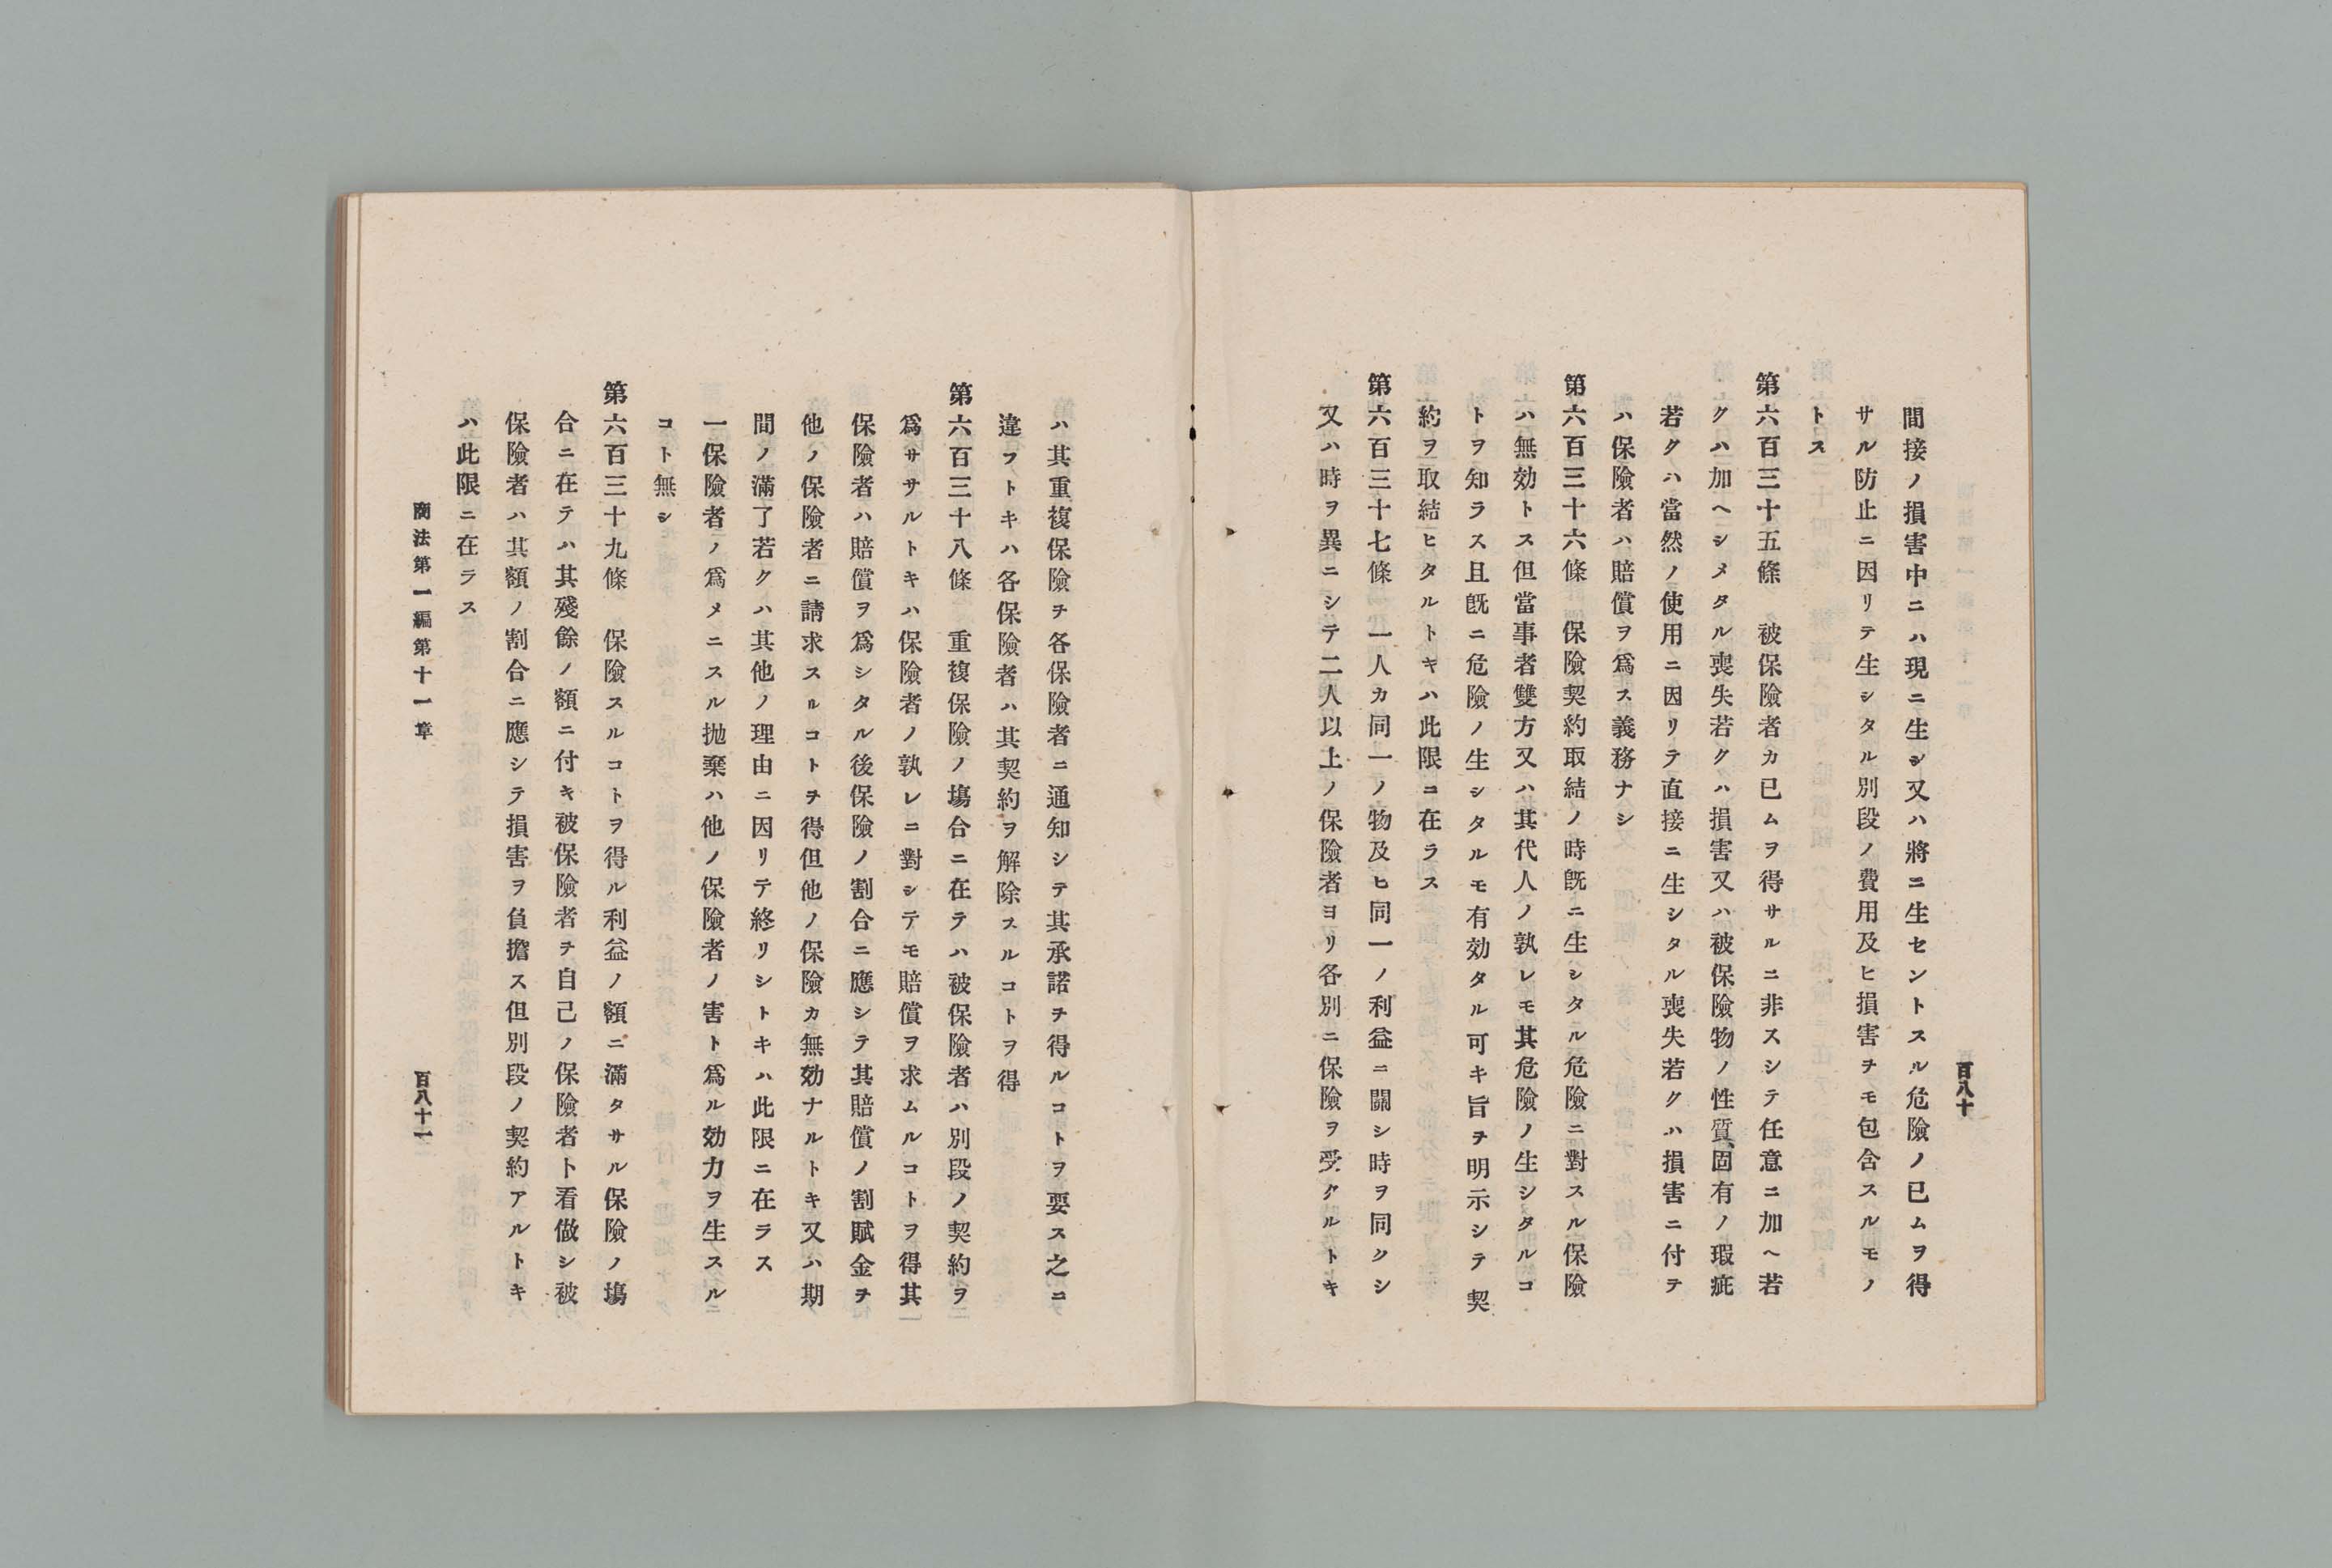 百八十
間接ノ損害中ニハ現ニ生シ又ハ將ニ生セントスル危險ノ已ムヲ得
サル防止ニ因リテ生シタル別段ノ費用及ヒ損害ヲモ包含スルモノ
トス
第六百三十五條　被保險者カ已ムヲ得サルニ非スシテ任意ニ加ヘ若
クハ加ヘシメタル喪失若クハ損害又ハ被保險物ノ性質、固有ノ瑕疵
若クハ當然ノ使用ニ因リテ直接ニ生シタル喪失若クハ損害ニ付テ
ハ保險者ハ賠償ヲ爲ス義務ナシ
第六百三十六條　保險契約取結ノ時既ニ生シタル危險ニ對スル保險
ハ無効トス但當事者雙方又ハ其代人ノ孰レモ其危險ノ生シタルコ
トヲ知ラス且既ニ危險ノ生シタルモ有効タル可キ旨ヲ明示シテ契
約ヲ取結ヒタルトキハ此限ニ在ラス
第六百三十七條　一人カ同一ノ物及ヒ同一ノ利益ニ關シ時ヲ同クシ
又ハ時ヲ異ニシテ二人以上ノ保險者ヨリ各別ニ保險ヲ受クルトキ
ハ其重複保險ヲ各保險者ニ通知シテ其承諾ヲ得ルコトヲ要ス之ニ
違フトキハ各保險者ハ其契約ヲ解除スルコトヲ得
第六百三十八條　重複保險ノ塲合ニ在テハ被保險者ハ別段ノ契約ヲ
爲サヾルトキハ保險者ノ孰レニ對シテモ賠償ヲ求ムルコトヲ得其
保險者ハ賠償ヲ爲シタル後保險ノ割合ニ應シテ其賠償ノ割賦金ヲ
他ノ保險者ニ請求スルコトヲ得但他ノ保險カ無効ナルトキ又ハ期
間ノ滿了若クハ其他ノ理由ニ因リテ終リシトキハ此限ニ在ラス
一保險者ノ爲メニスル抛棄ハ他ノ保險者ノ害ト爲ル効力ヲ生スル
コト無シ
第六百三十九條　保險スルコトヲ得ル利益ノ額ニ滿タサル保險ノ塲
合ニ在テハ其殘餘ノ額ニ付キ被保險者ヲ自己ノ保險者ト看做シ被
保險者ハ其額ノ割合ニ應シテ損害ヲ負擔ス但別段ノ契約アルトキ
ハ此限ニ在ラス
商法第一編第十一章
百八十一